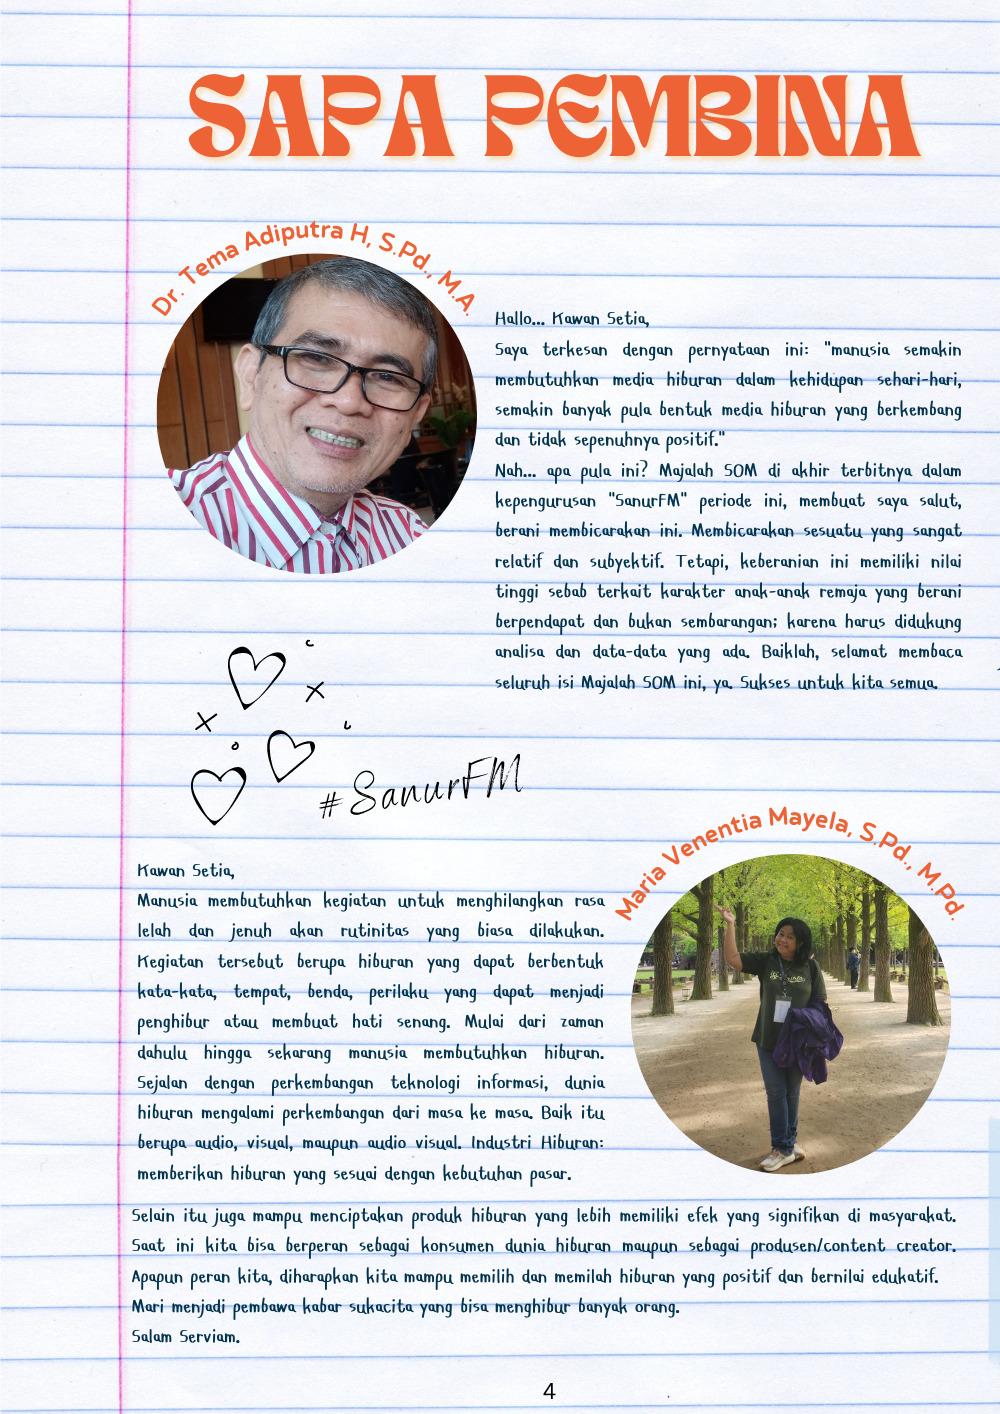 SAPA PEMBINA
Dr. Tema Adiputra H, S.Pd., M.A.
Hallo... Kawan Setia,
Saya terkesan dengan pernyataan ini: "manusia semakin
membutuhkan media hiburan dalam kehidupan sehari-hari,
semakin banyak pula bentuk media hiburan yang berkembang
dan tidak sepenuhnya positif."
Nah... apa pula ini? Majalah SOM di akhir terbitnya dalam
kepengurusan "SanurFM" periode ini, membuat saya salut,
berani membicarakan ini. Membicarakan sesuatu yang sangat
relatif dan subyektif. Tetapi, keberanian ini memiliki nilai
tinggi sebab terkait karakter anak-anak remaja yang berani
berpendapat dan bukan sembarangan; karena harus didukung
analisa dan data-data yang ada. Baiklah, selamat membaca
seluruh isi Majalah SOM ini, ya. Sukses untuk kita semua.
#SanurFM
Maria Venentia Mayela, S.Pd., M.Pd.
Kawan Setia,
Manusia membutuhkan kegiatan untuk menghilangkan rasa
lelah dan jenuh akan rutinitas yang biasa dilakukan.
Kegiatan tersebut berupa hiburan yang dapat berbentuk
kata-kata, tempat, benda, perilaku yang dapat menjadi
penghibur atau membuat hati senang. Mulai dari zaman
dahulu hingga sekarang manusia membutuhkan hiburan.
Sejalan dengan perkembangan teknologi informasi, dunia
hiburan mengalami perkembangan dari masa ke masa. Baik itu
berupa audio, visual, maupun audio visual. Industri Hiburan:
memberikan hiburan yang sesuai dengan kebutuhan pasar.
Selain itu juga mampu menciptakan produk hiburan yang lebih memiliki efek yang signifikan di masyarakat.
Saat ini kita bisa berperan sebagai konsumen dunia hiburan maupun sebagai produsen/content creator.
Apapun peran kita, diharapkan kita mampu memilih dan memilah hiburan yang positif dan bernilai edukatif.
Mari menjadi pembawa kabar sukacita yang bisa menghibur banyak orang.
Salam Serviam.
4